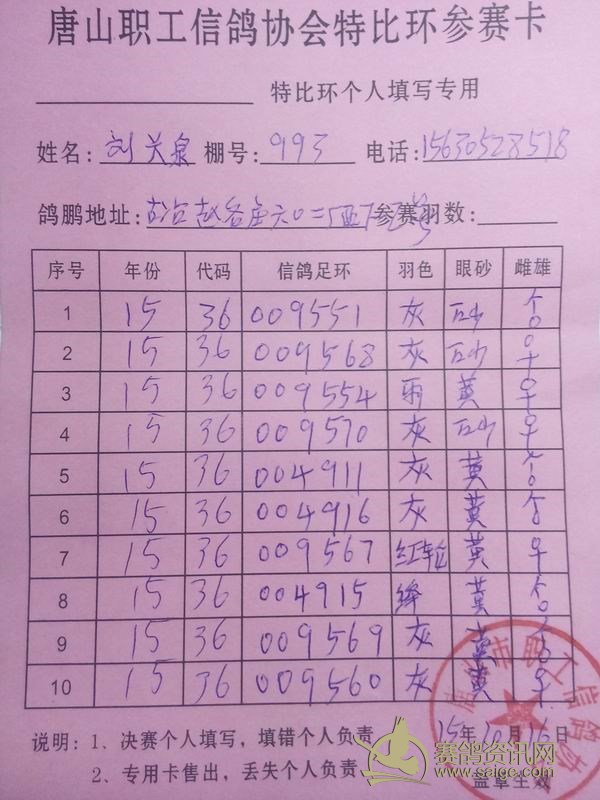 唐山职工信鸽协会特比环参赛卡
特比环个人填写专用
姓名: 刘关泉 棚号: 993 电话: 15630528518
鸽鹏地址: 古冶赵各庄 参赛羽数:
序号 年份 代码 信鸽足环 羽色 眼砂 雌雄
1 15 36 009551 灰 砂 ♂
2 15 36 009568 灰 砂 ♀
3 15 36 009554 雨 黄 ♀
4 15 36 009570 灰 砂 ♀
5 15 36 004911 灰 黄 ♂
6 15 36 004916 灰 黄 ♂
7 15 36 009567 红轮 黄 ♀
8 15 36 004915 绛 黄 ♂
9 15 36 009569 灰 黄 ♂
10 15 36 009560 灰 黄 ♀
说明: 1、决赛个人填写，填错个人负责 15年10月16日
2、专用卡售出，丢失个人负责 盖章生效
市职工信鸽协
赛鸽资讯网
www.saige.com